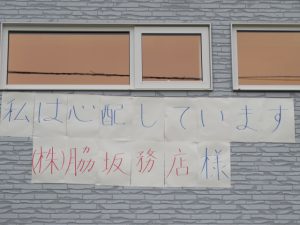 私は心配しています
(株)脇坂務店様